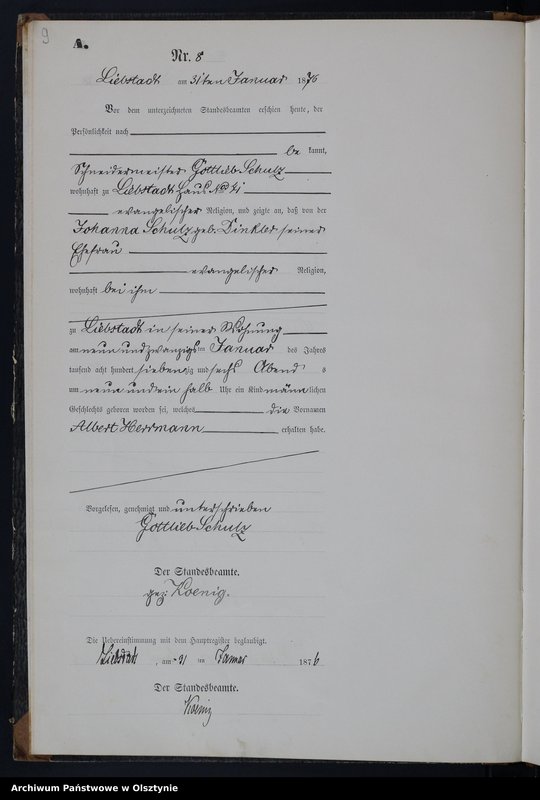 9
A.
Nr. 8
Liebstadt am 31ten Januar 1876
Vor dem unterzeichneten Standesbeamten erschien heute, der
Persönlichkeit nach
be kannt,
Schneidermeister Gottlieb Schulz
wohnhaft zu Liebstadt Haus No
evangelischer Religion, und zeigte an, daß von der
Johanna Schulz geb. Dinkler seiner
Ehefrau
evangelischer Religion,
wohnhaft bei ihm
zu Liebstadt in seiner Wohnung
am neun und zwanzigsten Januar des Jahres
tausend acht hundert siebenzig und sechs Abend s
um neun und ein halb Uhr ein Kind männlichen
Geschlechts geboren worden sei, welches die Vornamen
Albert Herrmann erhalten habe.
Vorgelesen, genehmigt und unterschrieben
Gottlieb Schulz
Der Standesbeamte.
gez: Koenig.
Die Uebereinstimmung mit dem Hauptregister beglaubigt.
Liebstadt, am 31 ten Januar 1876
Der Standesbeamte.
Koenig
Archiwum Państwowe w Olsztynie